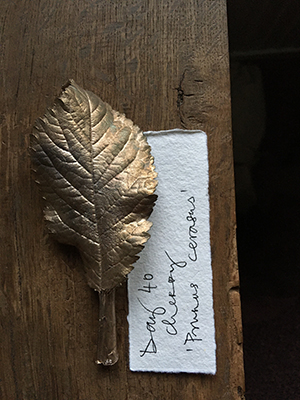 Day 40
cherry
'Prunus cerasus'